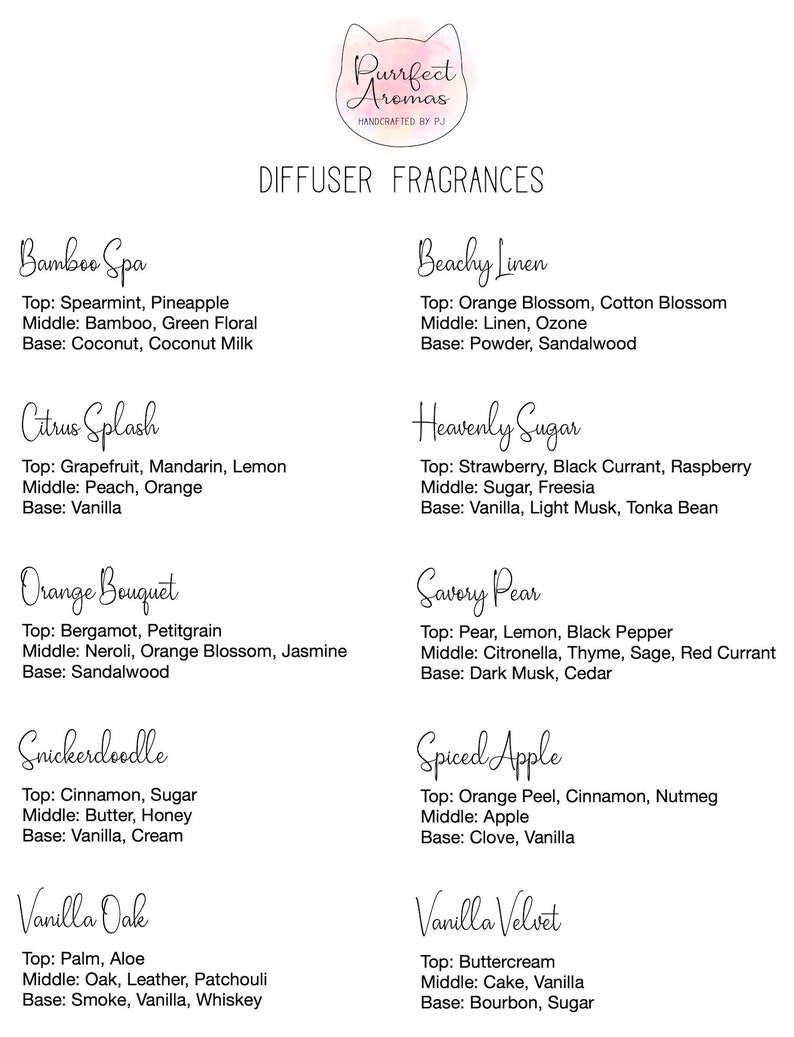 Purrfect
Aromas
HANDCRAFTED BY PJ
DIFFUSER FRAGRANCES
Bamboo Spa
Top: Spearmint, Pineapple
Middle: Bamboo, Green Floral
Base: Coconut, Coconut Milk
Beachy Linen
Top: Orange Blossom, Cotton Blossom
Middle: Linen, Ozone
Base: Powder, Sandalwood
Citrus Splash
Top: Grapefruit, Mandarin, Lemon
Middle: Peach, Orange
Base: Vanilla
Heavenly Sugar
Top: Strawberry, Black Currant, Raspberry
Middle: Sugar, Freesia
Base: Vanilla, Light Musk, Tonka Bean
Orange Bouquet
Top: Bergamot, Petitgrain
Middle: Neroli, Orange Blossom, Jasmine
Base: Sandalwood
Savory Pear
Top: Pear, Lemon, Black Pepper
Middle: Citronella, Thyme, Sage, Red Currant
Base: Dark Musk, Cedar
Snickerdoodle
Top: Cinnamon, Sugar
Middle: Butter, Honey
Base: Vanilla, Cream
Spiced Apple
Top: Orange Peel, Cinnamon, Nutmeg
Middle: Apple
Base: Clove, Vanilla
Vanilla Oak
Top: Palm, Aloe
Middle: Oak, Leather, Patchouli
Base: Smoke, Vanilla, Whiskey
Vanilla Velvet
Top: Buttercream
Middle: Cake, Vanilla
Base: Bourbon, Sugar